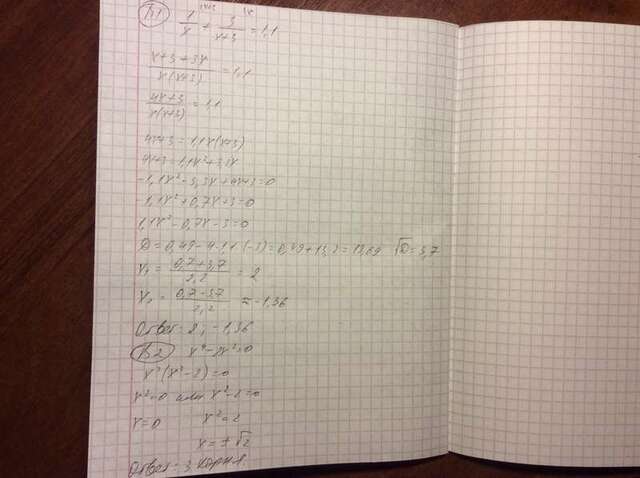 В1 1/x + 3/(x+3) = 1,1
(x+3+3x)/(x(x+3)) = 1,1
(4x+3)/(x(x+3)) = 1,1
4x+3 = 1,1x(x+3)
4x+3 = 1,1x²+3,3x
-1,1x²-3,3x+4x+3=0
-1,1x²+0,7x+3=0
1,1x²-0,7x-3=0
D=0,49-4·1,1·(-3)=0,49+13,2=13,69 √D=3,7
x₁ = (0,7+3,7)/2,2 = 2
x₂ = (0,7-3,7)/2,2 ≈ -1,36
Ответ: 2; -1,36
В2 x⁴-2x²=0
x²(x²-2)=0
x²=0 или x²-2=0
x=0 x²=2
x=±√2
Ответ: 3 корня.